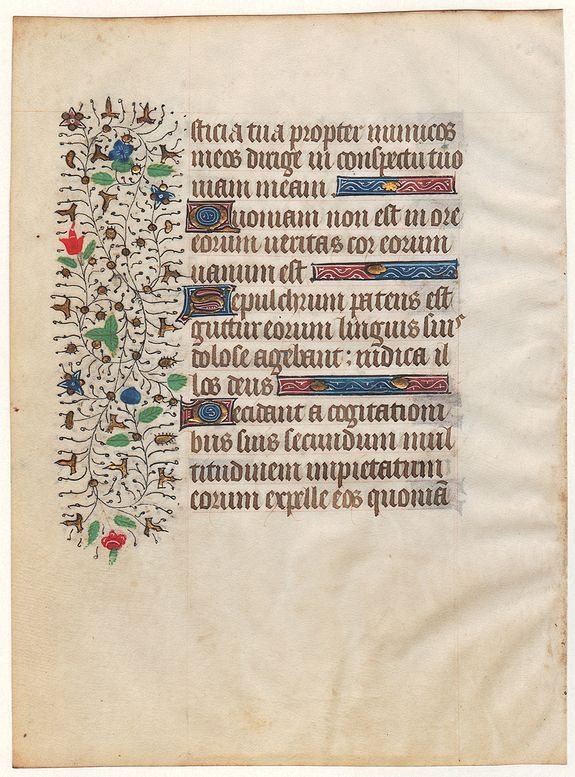 sticia tua propter inimicos
meos dirige in conspectu tuo
uiam meam
Quoniam non est in ore
eorum ueritas cor eorum
uanum est
Sepulchrum patens est
guttur eorum linguis suis
dolose agebant : iudica il
los deus
Decidant a cogitationi
bus suis secundum mul
titudinem impietatum
eorum expelle eos quoniã